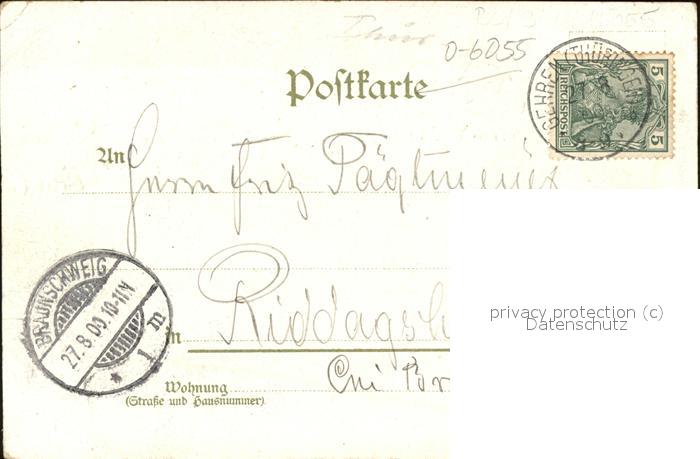 Thür
0-6055
Postkarte
GEHREN (THÜRINGEN)
5 REICHSPOST 5
An Herrn Fritz
privacy protection (c)
Datenschutz
BRAUNSCHWEIG
27.8.00.10-11V
* 1 m
in Riddagsh
Wohnung
(Straße und Hausnummer)
Br